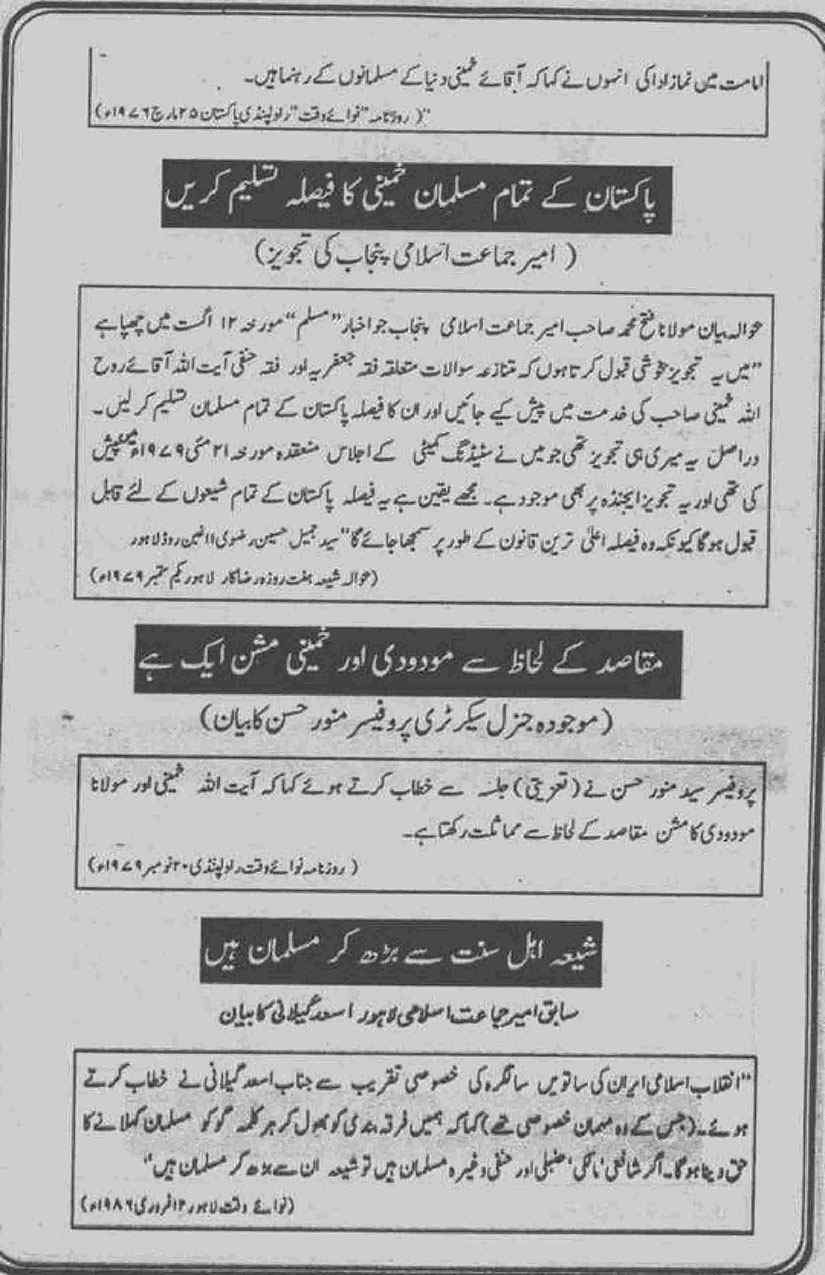 امامت میں نماز ادا کی انہوں نے کہا کہ آقائے خمینی دنیا کے مسلمانوں کے رہنما ہیں۔
"( روزنامہ "نوائے وقت" راولپنڈی پاکستان ۲۵ مارچ ۱۹۷۶ء)
پاکستان کے تمام مسلمان خمینی کا فیصلہ تسلیم کریں
( امیر جماعت اسلامی پنجاب کی تجویز)
حوالہ بیان مولانا فتح محمد صاحب امیر جماعت اسلامی پنجاب جو اخبار "مسلم" مورخہ ۱۲ اگست میں چھپا ہے
"میں یہ تجویز بخوشی قبول کرتا ہوں کہ متنازعہ سوالات متعلقہ فقہ جعفریہ اور فقہ حنفی آیت اللہ آقائے روح
اللہ خمینی صاحب کی خدمت میں پیش کیے جائیں اور ان کا فیصلہ پاکستان کے تمام مسلمان تسلیم کر لیں۔
دراصل یہ میری ہی تجویز تھی جو میں نے سٹینڈنگ کمیٹی کے اجلاس منعقدہ مورخہ ۲۱ مئی ۱۹۷۹ء میں پیش
کی تھی اور یہ تجویز ایجنڈہ پر بھی موجود ہے۔ مجھے یقین ہے یہ فیصلہ پاکستان کے تمام شیعوں کے لئے قابل
قبول ہوگا کیونکہ وہ فیصلہ اعلیٰ ترین قانون کے طور پر سمجھا جائے گا" سید جمیل حسین رضوی ۱۱ فین روڈ لاہور
(حوالہ شیعہ ہفت روزہ رضاکار لاہور یکم ستمبر ۱۹۷۹ء)
مقاصد کے لحاظ سے مودودی اور خمینی مشن ایک ہے
(موجودہ جنرل سیکرٹری پروفیسر منور حسن کا بیان)
پروفیسر سید منور حسن نے (تعزیتی) جلسہ سے خطاب کرتے ہوئے کہا کہ آیت اللہ خمینی اور مولانا
مودودی کا مشن مقاصد کے لحاظ سے مماثلت رکھتا ہے۔
( روزنامہ نوائے وقت راولپنڈی ۲۰ نومبر ۱۹۷۹ء)
شیعہ اہل سنت سے بڑھ کر مسلمان ہیں
سابق امیر جماعت اسلامی لاہور اسعد گیلانی کا بیان
"انقلاب اسلامی ایران کی ساتویں سالگرہ کی خصوصی تقریب سے جناب اسعد گیلانی نے خطاب کرتے
ہوئے۔ (جس کے وہ مہمان خصوصی تھے) کہا کہ ہمیں فرقہ بندی کو بھول کر ہر کلمہ گو کو مسلمان کہلانے کا
حق دینا ہوگا۔ اگر شافعی' مالکی' حنبلی اور حنفی وغیرہ مسلمان ہیں تو شیعہ ان سے بڑھ کر مسلمان ہیں"
(نوائے وقت لاہور ۱۲ فروری ۱۹۸۶ء)